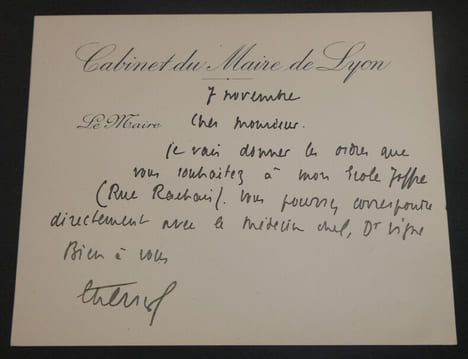 Cabinet du Maire de Lyon
7 novembre
Le Maire
Cher Monsieur.
Je vais donner les ordres que
vous souhaitez à mon Ecole Joffre
(Rue Rachais). Vous pourrez correspondre
directement avec le Médecin chef, Dr Vigne
Bien à vous